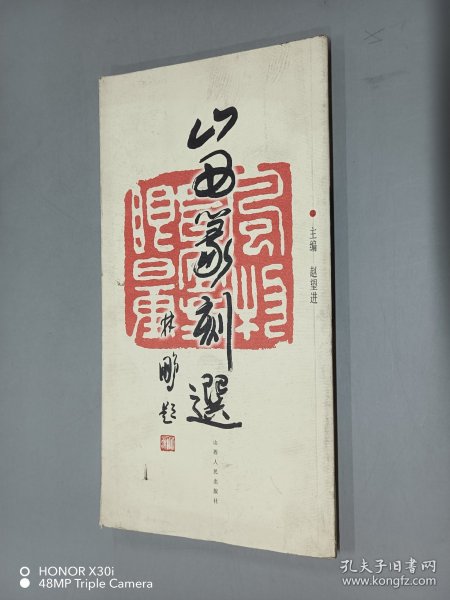 山西篆刻選
林鵬題
主编 赵望进
山西人民出版社
HONOR X30i
48MP Triple Camera
孔夫子旧书网
www.kongfz.com